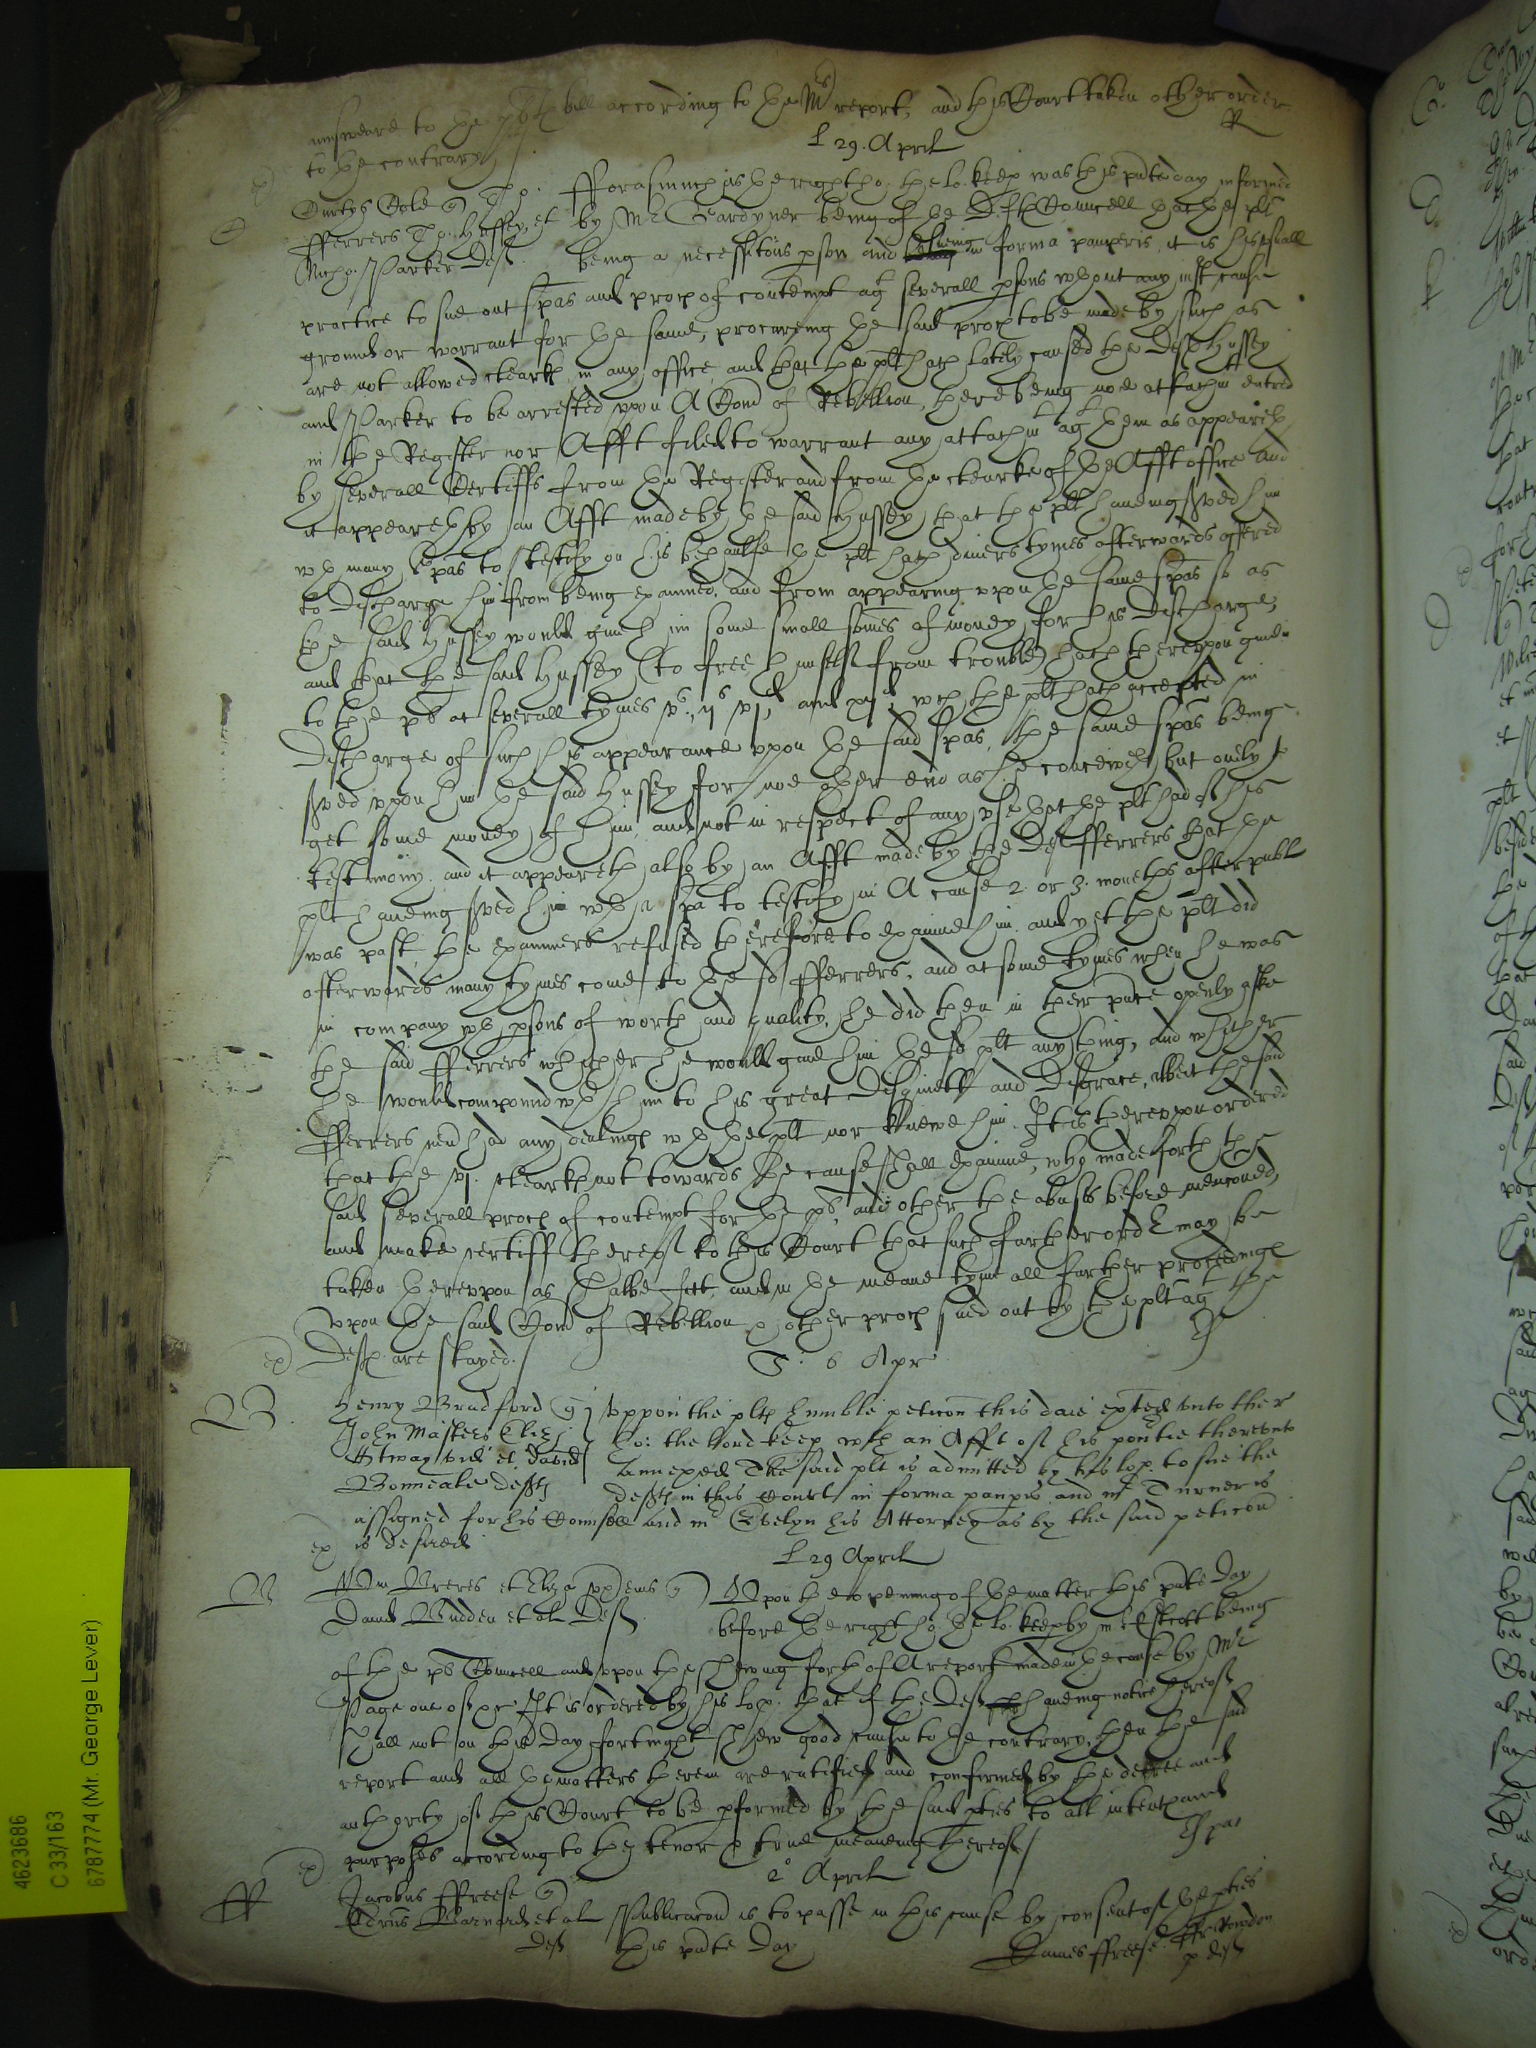 answeare to the pl bill according to the Mr report, and this Court taken other order
to the contrary R
L 29. April
Curtys Cole Tho: fforasmuch as the right ho: the lo: keep was this pnte day informed
fferrers Tho: Hussey, et by Mr Gardyner being of the Deftes Councell that the plt
Nicho: Parker Deftes being a necessitous pson and sueing in forma pauperis, it is his usuall
practice to sue out Spas and proces of contempt agt severall psons wthout any just cause
ground or warrant for the same, procureing the said proces to be made by such as
are not allowed clearkes in any office, and that the plt hath lately caused the Deftes Hussey
and Parker to be arrested upon A Com of Rebellion, there being noe attachmt entred
in the Register nor Afft filed to warrant any attachmt agt them as appeareth
by severall Certiffs from the Register and from the clearke of the Afft office And
it appeareth by an Afft made by the said Hussey that the plt haveing served him
wth many spas to testify on his behaulfe the plt hath divers tymes afterwards offered
to discharge him from being exmined, and from appearing upon the same spas so as
the said Hussey would give him some small somes of money for his discharge
and that the said Hussey (to free himselfe from trouble) hath thereupon given
to the pt at severall tymes vs, ijs vjd, and xijd wch the plt hath accepted in
discharge of such his appearance upon the said spas, the same spas being
served upon him the said Hussey for noe other end as he conceiveth but onely to
get some money of him, and not in respect of any use that the plt had of his
testimony. and it appeareth also by an Afft made by the Deft fferrers that the
plt haveing served him wth a spa to testify in A cause 2. or 3. moneths after publ
was past, the examiners refused therefore to examine him, and yet the plt did
afterwards many tymes come to the sd fferrers, and at some tymes when he was
in company wth psons of worth and quality, he did then in their pnce openly aske
the said fferrers whether he would give him the sd plt any thing, and whether
he would compound wth him to his great disquiett and disgrace, albeit the said
fferrers nevr had any dealings wth the plt nor knewe him. It is thereupon ordered
that the vj. clearkes not towards the cause shall examine, who made forth the
said severall proces of contempt for the pt, and other the abuses before menconed,
and make certiff thereof to this Court that such further order may be
taken thereupon as shalbe fitt, and in the meane tyme all further proceedings
upon the said Com of Rebellion & other proces sued out by the plt agt the
Deftes are stayed.
6 Apr
B
Henry Bradford Uppon the pltes humble peticon this daie exted unto the r
John Masters Eliz: ho: the Lord keep wth an Afft of his povtie thereunto
Atway vid et David annexed The said plt is admitted by his lop. to sue the
Bonneale deftes deftes in this Court in forma paupis and mr Turner is
assigned for his Counsell and mr Evelyn his Attorney as by the said peticon
is desired
L 29 April
B
Wm Breres et Eliza ux eius Upon the opening of the matter this pnte day
David Budden et al Deftes before the right ho: the lo: keep by mr Estcott being
of the pts Councell and upon the shewing forth of A report made in the cause by Mr
Page one of &c It is ordered by his lop. that if the Deft haveing notice hereof
shall not on this day fortnight shew good cause to the contrary, then the said
report and all the matters therein are ratified and confirmed by the decree and
authority of this Court to be pformed by the said pties to all intents and
purposes according to the tenor & true meaneing thereof
2o April
ff
Jacobus ffreese
Barnard et al Publicacon is to passe in this cause by consent of the pties
Deft this pnte day James ffreese
p deft
4623686
C 33/163
6787774 (Mr. George Lever)